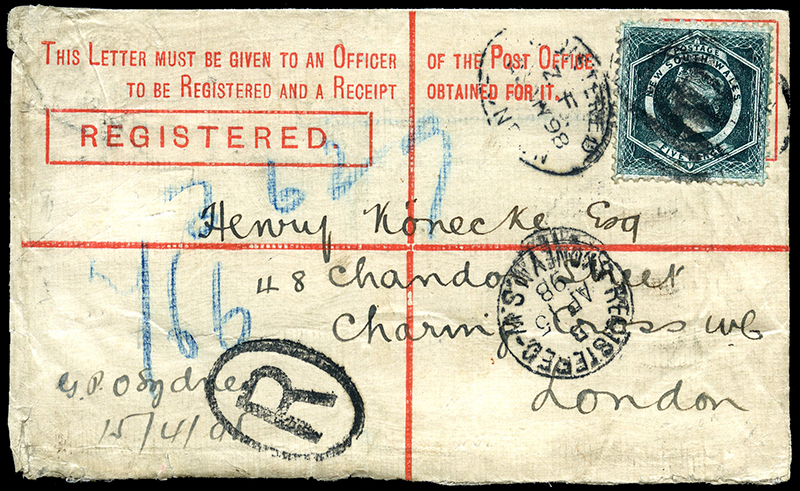 THIS LETTER MUST BE GIVEN TO AN OFFICER OF THE POST OFFICE
TO BE REGISTERED AND A RECEIPT OBTAINED FOR IT.
REGISTERED
POSTAGE
NEW SOUTH WALES
FIVE PENCE
98
Henry Könecke Esq
48 Chandos Street
Charing Cross WC
London
166
REGISTERED N.S.W.
SYDNEY
AP
98
G.P.O Sydney
15/4/98
R